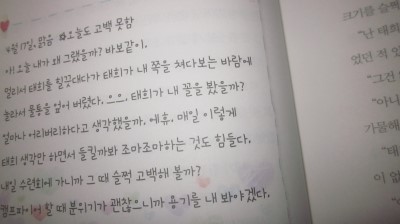 4월 17일, 맑음 오늘도 고백 못함
아! 오늘 내가 왜 그랬을까? 바보같이.
멀리서 태희를 힐끗대다가 태희가 내 쪽을 쳐다보는 바람에
놀라서 물통을 엎어 버렸다. ㅡ.ㅡ, 태희가 내 꼴을 봤을까?
얼마나 어리버리하다고 생각했을까. 에휴, 매일 이렇게
태희 생각만 하면서 들킬까봐 조마조마하는 것도 힘들다.
내일 수련회에 가니까 그 때 슬쩍 고백해 볼까?
캠프파이어 할 때 분위기가 괜찮으니까 용기를 내 봐야겠다.
크기를 슬쩍
"난 태희
었던 적 있
"그건
"아니
가물해
"태
이 없